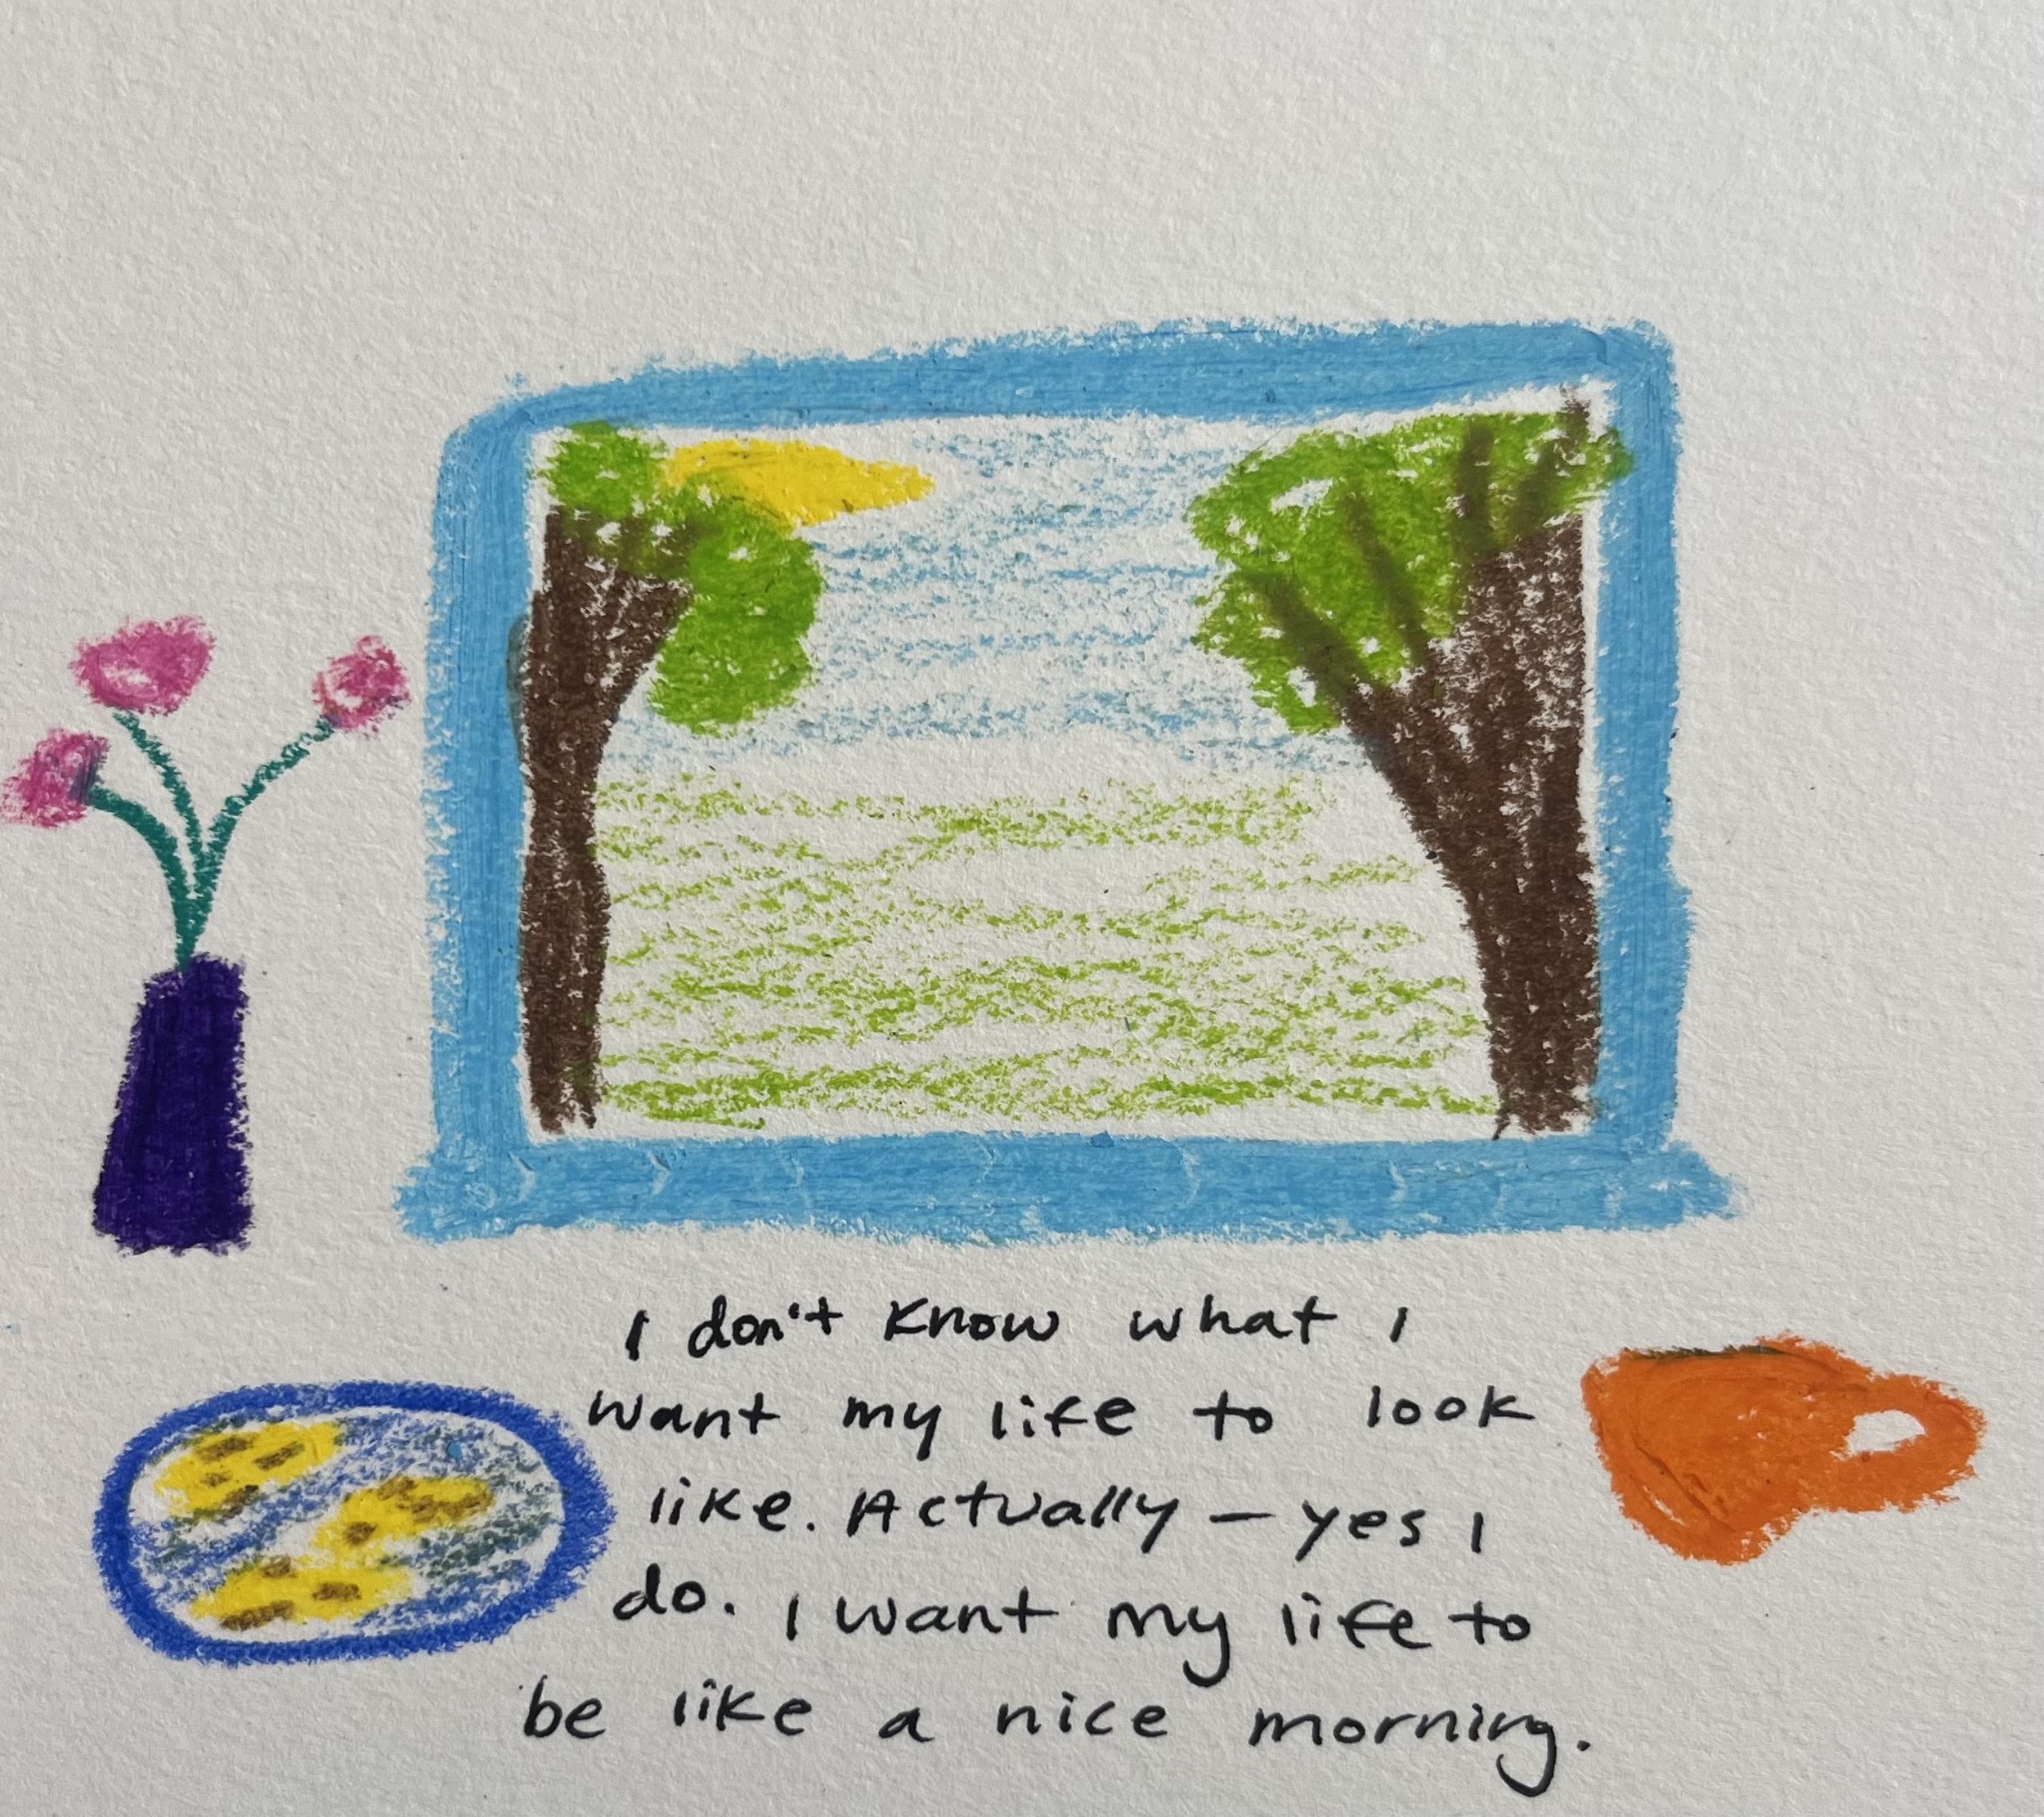 I don't know what I
want my life to look
like. Actually — yes I
do. I want my life to
be like a nice morning.